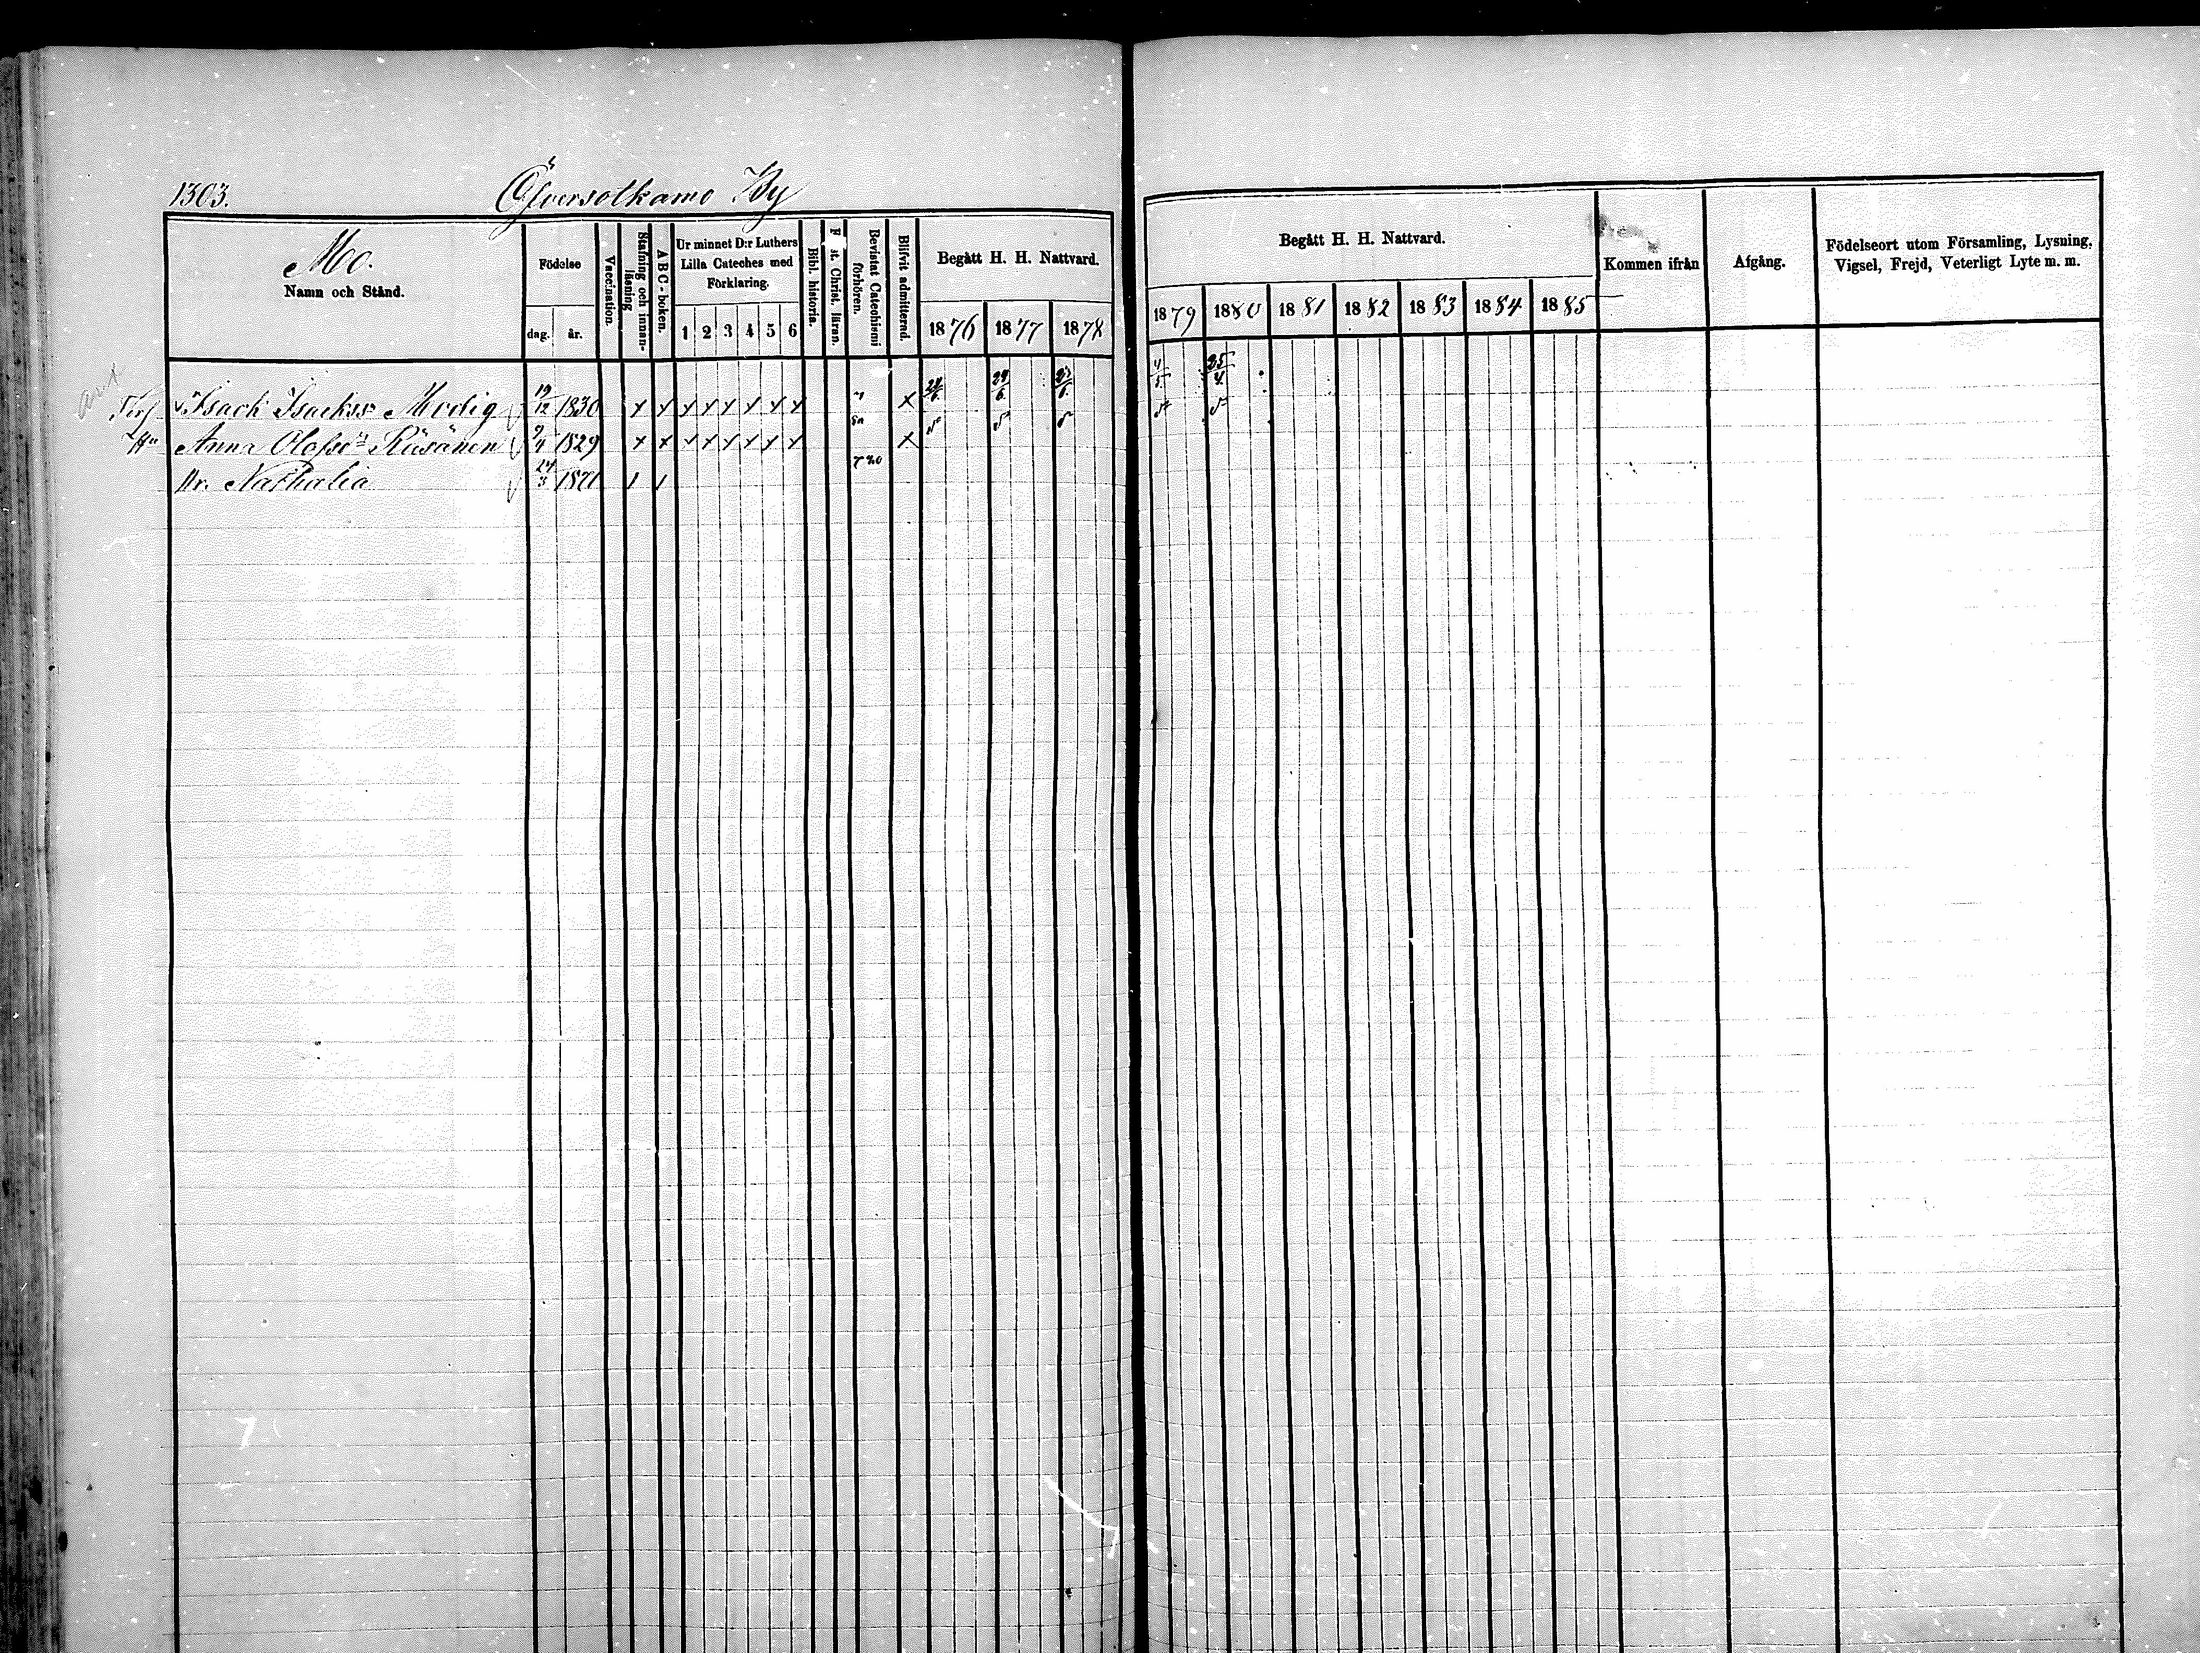 1303. Öfversotkamo By
Mo.
Namn och Stånd.
Födelse
dag. år.
Vaccination.
Stafning och innanläsning
ABC-boken.
Ur minnet D:r Luthers Lilla Cateches med Förklaring.
1 2 3 4 5 6
Bibl. historia.
F st. Christ. läran.
Bevistat Catechismi förhören.
Blifvit admitterad.
Begått H. H. Nattvard.
1876 1877 1878
Begått H. H. Nattvard.
1879 1880 1881 1882 1883 1884 1885
Kommen ifrån
Afgång.
Födelseort utom Församling, Lysning, Vigsel, Frejd, Veterligt Lyte m. m.
Isach Isackss. Modig 19/12 1830 x x x x x x x x " x 24/6 24/6 23/6 4/5 25/4
Hu Anna Olofsdr Räisänen 9/4 1829 x x x x x x x x x
Dr. Nathalia 24/3 1871 1 1